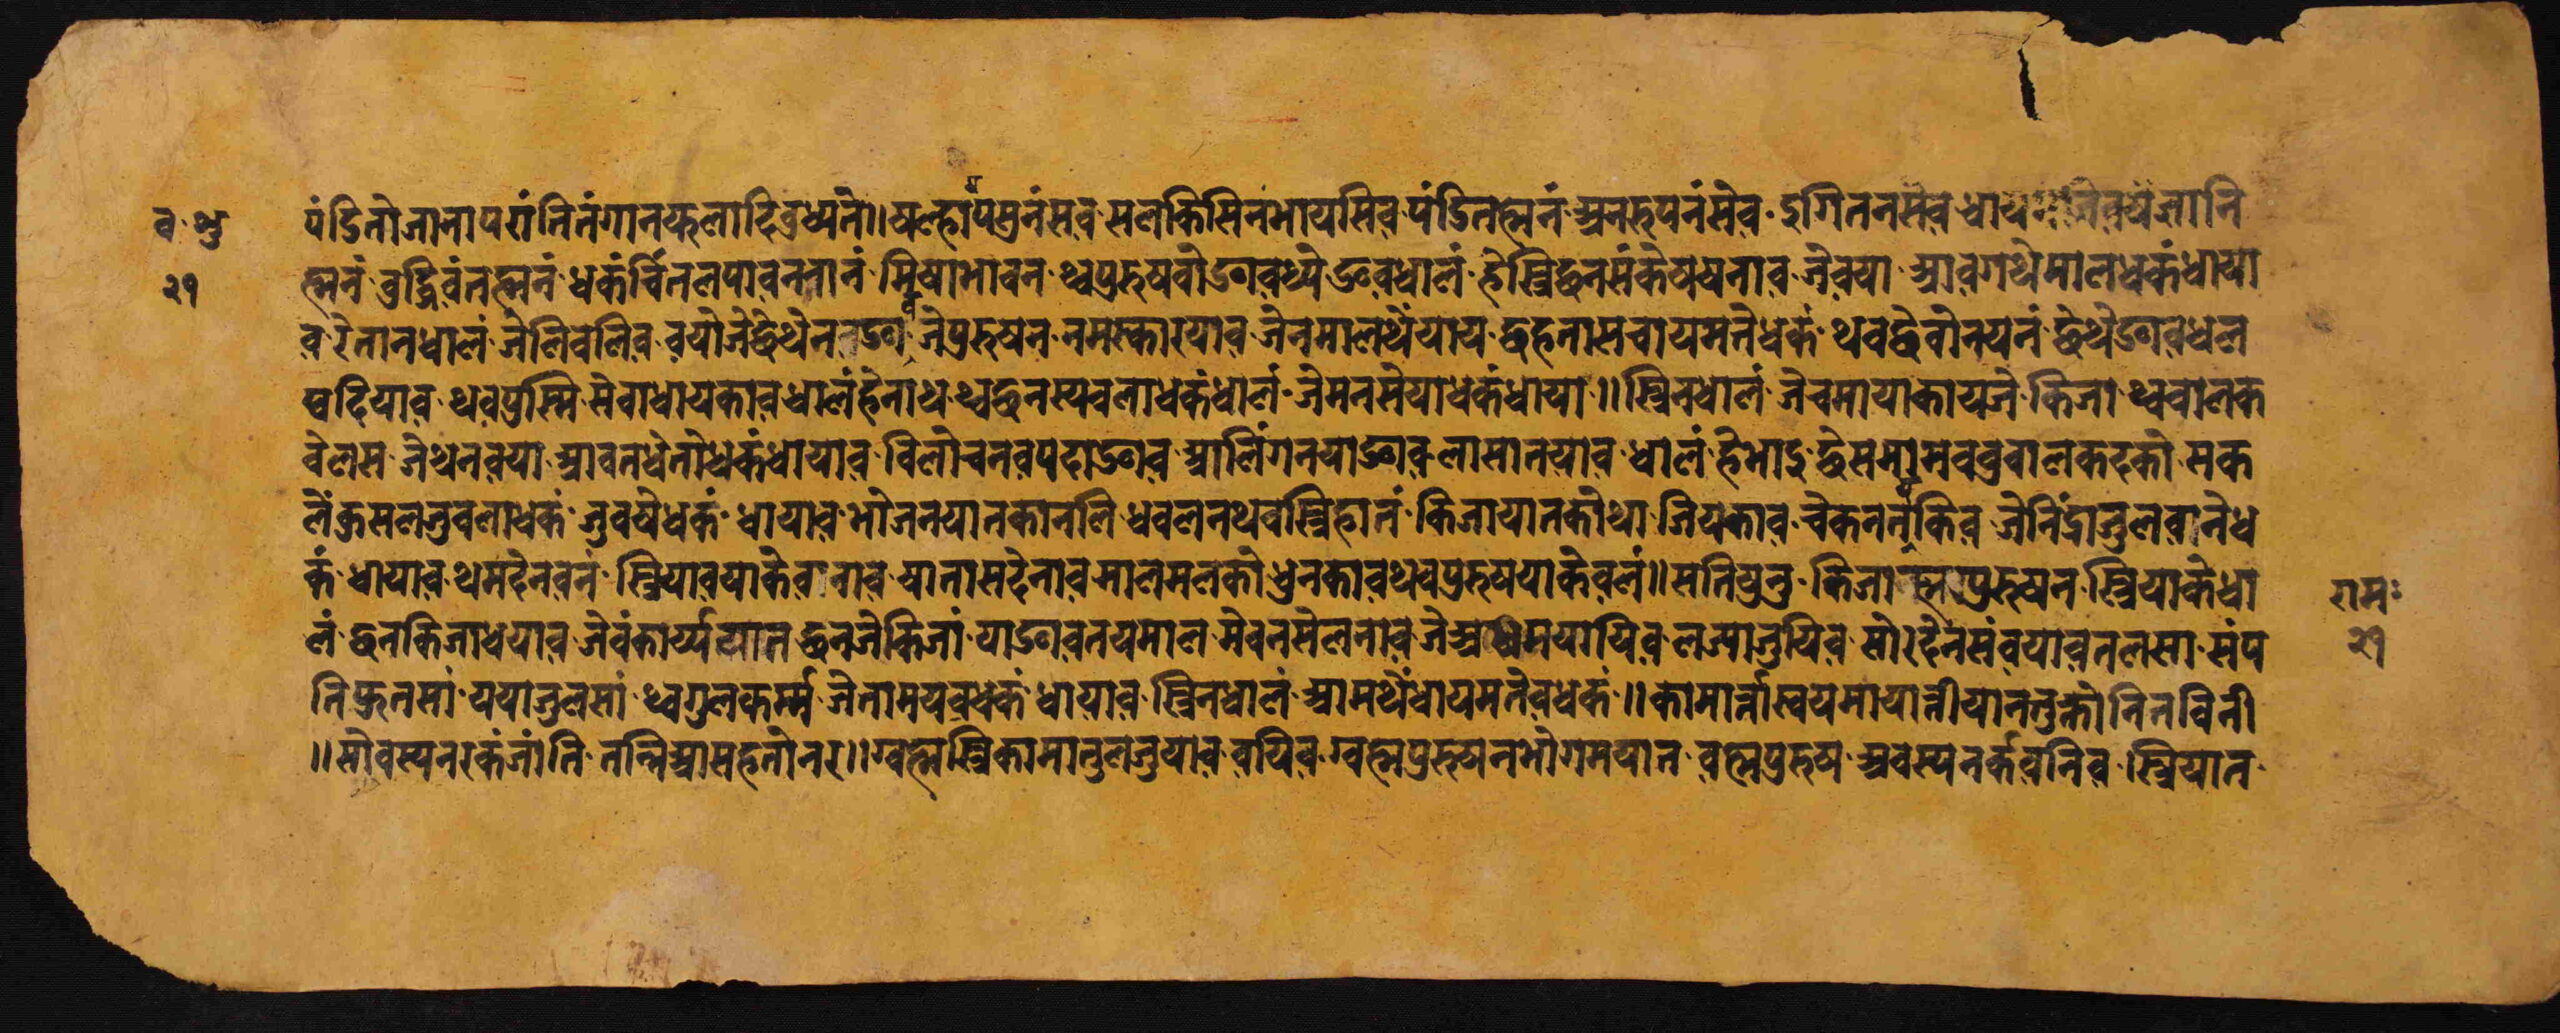 व॰ भु
२१
पंडितो जानाप रांतितंगानफलादिवुध्यते॥ षल्हापसुनंसव सलकिसिनंभायसिव पंडितह्मनं अनरुपनंसेव इगितनसेव धाय जिवयं ज्ञानि
ह्मनं वुद्धिवंतह्मनं धकं चिंतलपावननानं मिषाभावन थ्वपुरुषवोङाव थ्यंङावधालं हेस्त्रिछनसंकेषयनाव जेवया आवगथेमालधकंधाया
व रेतानधालं जेलिवलिव वयोजेछेथेन ङाव जेपुरुषन नमस्कारयाव जेनमालथेंयाय छहनासचायमतेधकं थवछेवोनयनं छेथेङावधल
षदियाव थवपुस्मि सेवाधायकाव धालंहेनाथ थ्वछनस्यवलाधकंधालं जेमनसेयाधकंधाया॥ स्त्रिनधालं जेवमायाकायजे किजा थ्ववालक
वेलस जेथनवया आवतधेनोधकंधायाव विलोचनवपदाङाव आलिंगनयाङाव लासानयाव धालं हेभाइ छेसमामववुवालकदको सक
लें कुसलजुवलाधकं जुवयेधकं धायाव भोजनयानकानलि धवलनथवस्त्रिहानं किजायातकोथा जियकाव चेकननंकिव जेनिंद्राजुलवानेध
कं धायाव थमदेनवनं स्त्रियावयाकेवावाव यातासदेनाव मालमलको धुनकाव थवपुरुषयाकेवलं॥ सतिषुनु किजा ह्मपुरुषन स्त्रियाकेधा
लं छनकिजाधयाव जेवंकार्य्ययात छनजेकिजां याङावतयमाल मेवनसेलनाव जेअथेमयायिव लज्याजुयिव सो। देनसंवयावतलसा संप
ति फुतसां ययाजुलसां थ्वगुलकर्म्म जेतामयवधकं धायाव स्त्रिनधालं आमथेंधायमतेवधकं॥ कामार्त्तास्वयमायातीयानतुक्तोनितविनी
॥ सोवस्यनरकंजांति तन्निआसहतोनर॥ ग्वह्मस्त्रिकामातुलजुयाव वयिव ग्वह्मपुरुषनभोगमयात वह्मपुरुष अवस्यनर्कवनिव स्त्रियान
रामः
२१